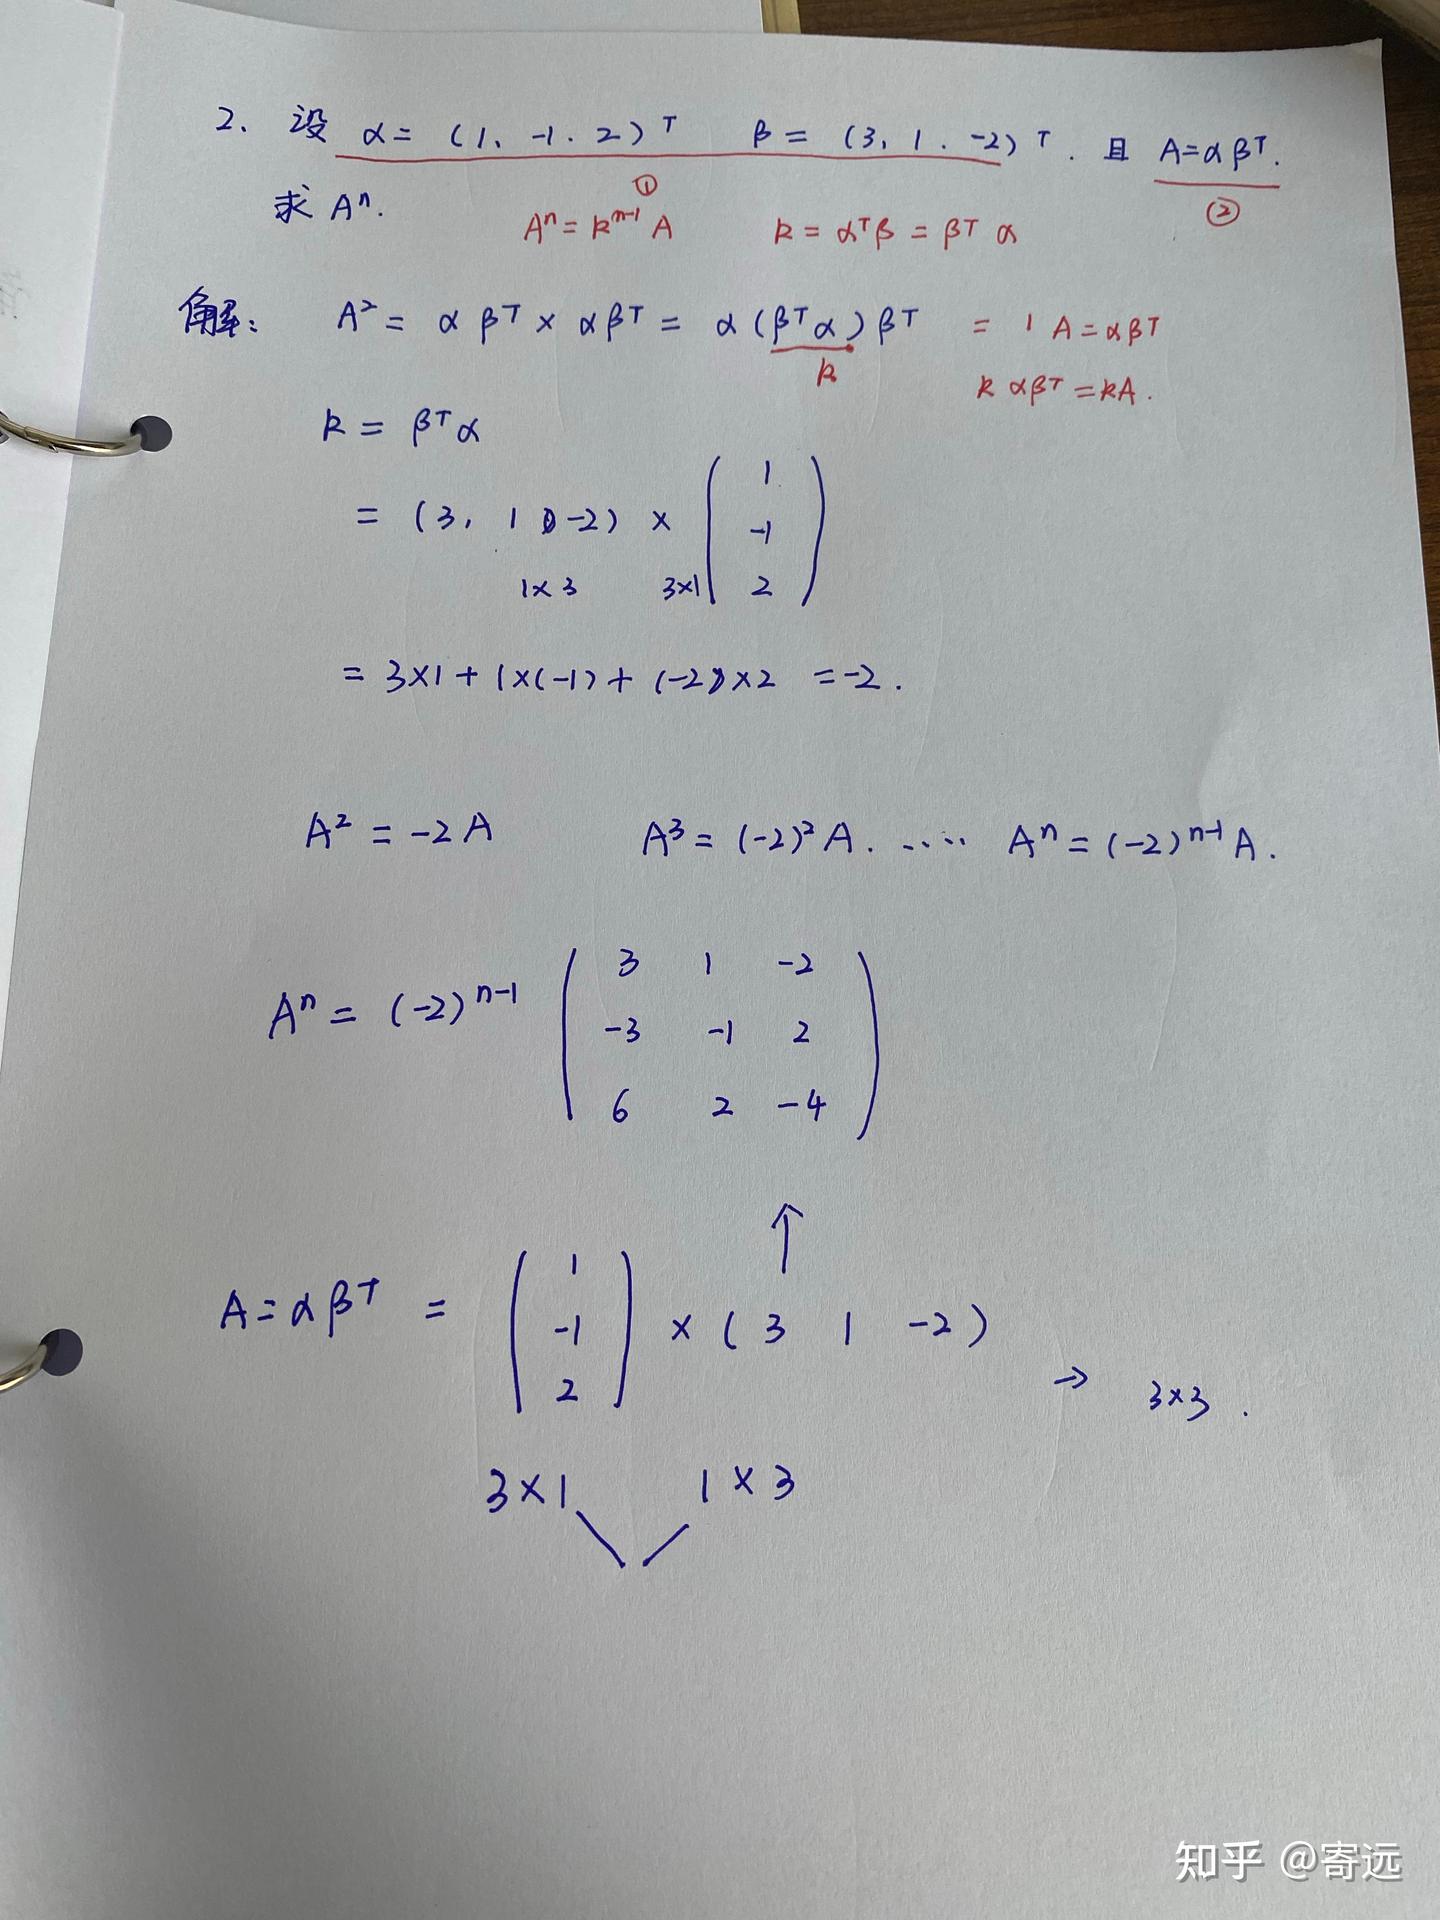 2. 设 α = (1, -1. 2)ᵀ β = (3, 1. -2)ᵀ. 且 A=αβᵀ.
① ②
求 Aⁿ.
Aⁿ = kⁿ⁻¹ A k = αᵀβ = βᵀ α
解: A² = α βᵀ × αβᵀ = α (βᵀα) βᵀ = 1 A = αβᵀ
k k αβᵀ = kA.
k = βᵀα
= (3, 1, -2) × ( 1
-1
2 )
1×3 3×1
= 3×1 + 1×(-1) + (-2)×2 = -2.
A² = -2A A³ = (-2)² A. ····· Aⁿ = (-2)ⁿ⁻¹ A.
Aⁿ = (-2)ⁿ⁻¹ ( 3 1 -2
-3 -1 2
6 2 -4 )
↑
A = αβᵀ = ( 1
-1
2 ) × ( 3 1 -2 )
→ 3×3.
3×1 1×3
知乎 @寄远